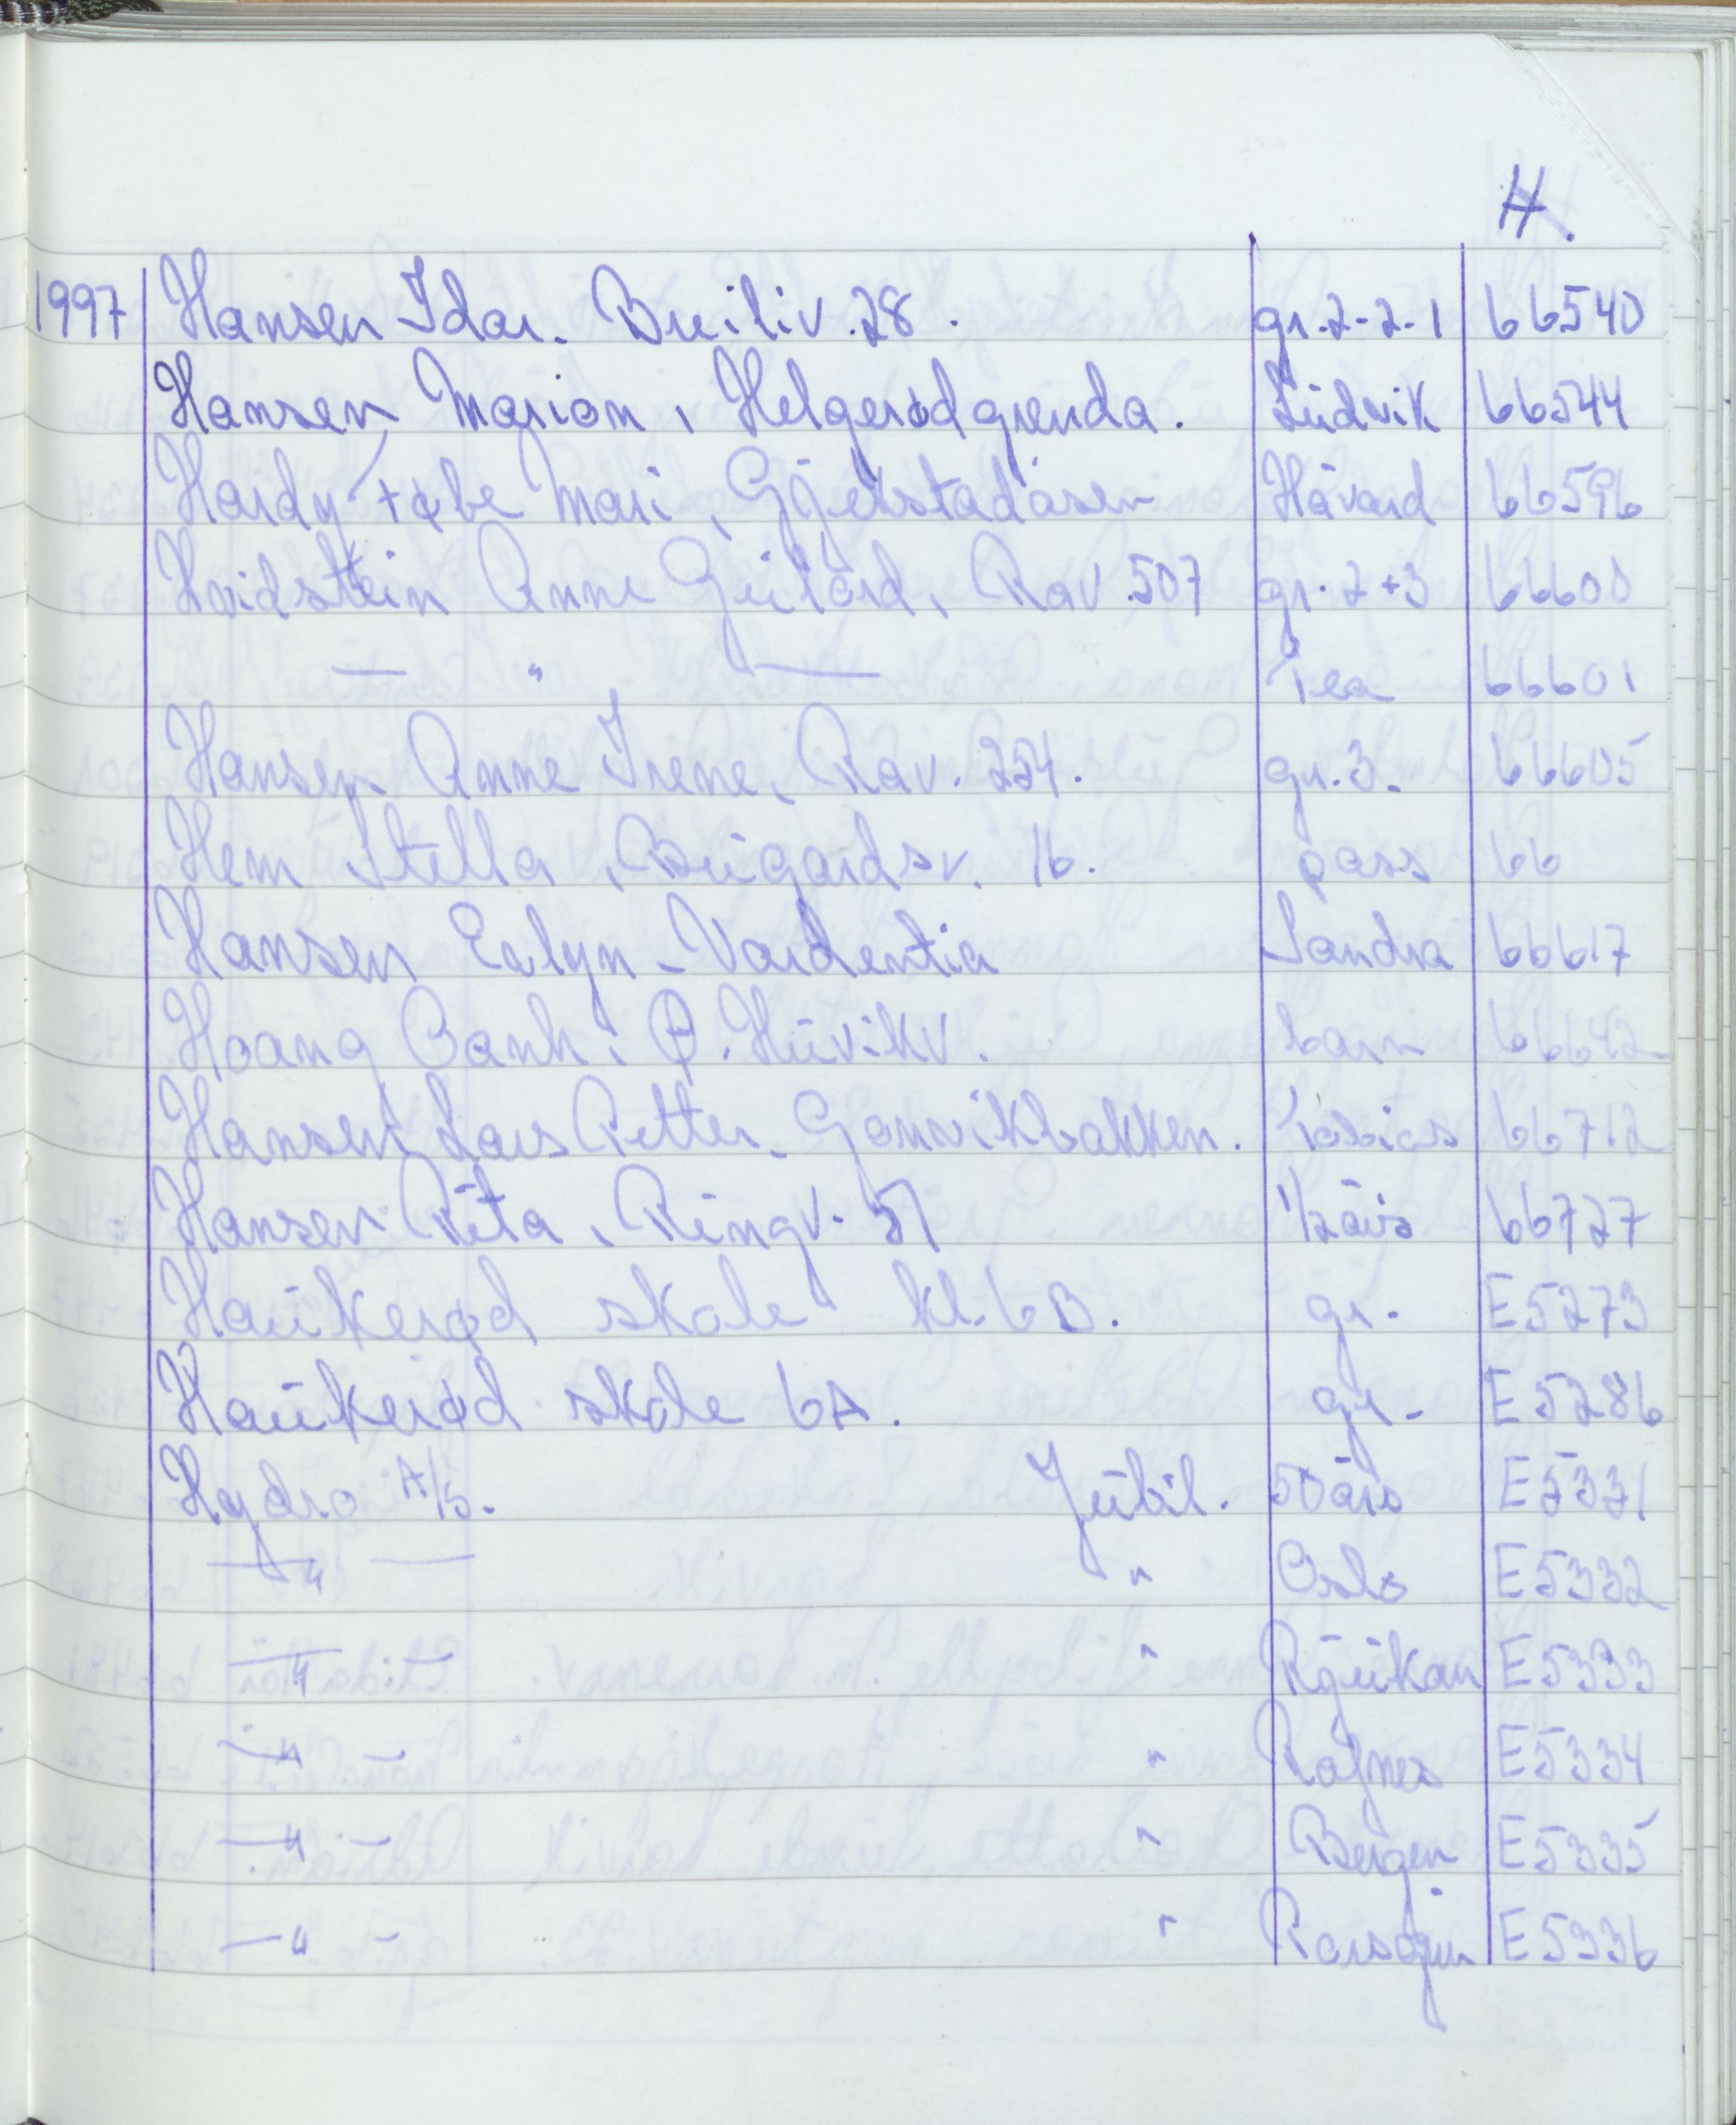 H.
1997 Hansen Idar. Breiliv. 28. gr. 2-2-1 66540
Hansen Marion, Helgerødgrenda. Ludvik 66544
Hardy Mari, Gjekstadåsen Håvard 66596
Hvidstein Anne Gulård, Rav. 507 gr. 2+3 66600
— " — Tea 66601
Hansen Anne Irene, Rav. 224. gr. 3. 66605
Hem Stella, Bugårdsv. 16. pass 66
Hansen Evlyn - Vardentia Sandra 66617
Hoang Banh, Ø. Huvikv. barn 66642
Hansen Lars Petter. Gonvikbakken. Tobias 66712
Hansen Rita, Ringv. 51 1/2 års 66727
Haukerød skole kl. 6B. gr. E5273
Haukerød skole 6A. gr. E5286
Hydro A/S. Jubil. 50 års E5331
— " — " Oslo E5332
— " — " Rjukan E5333
— " — " Rafnes E5334
— " — " Bergen E5335
— " — " E5336